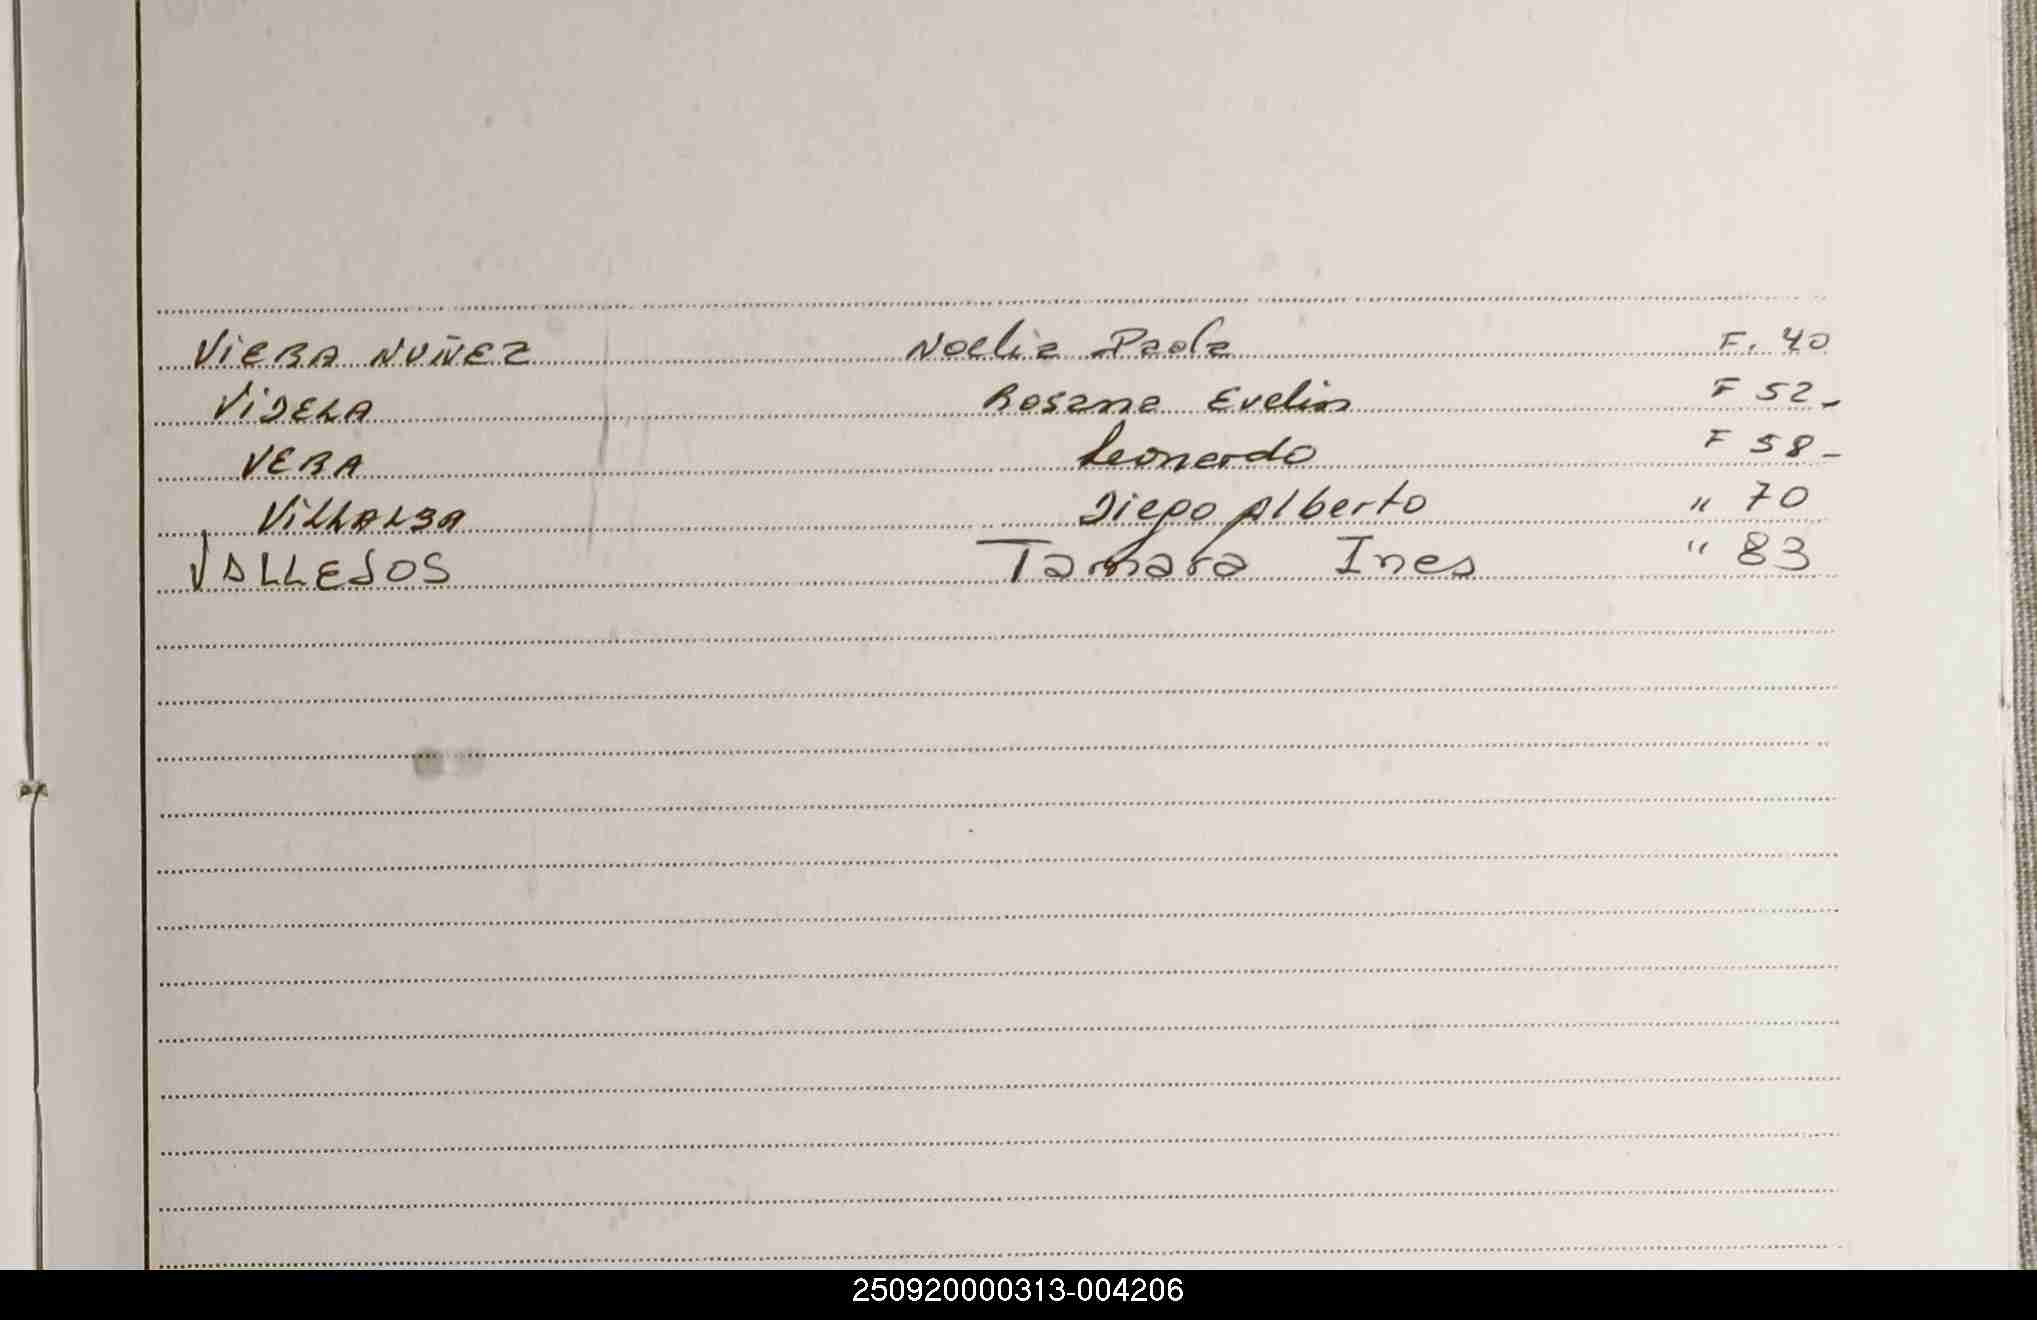 VIERA NUÑEZ Noelia Paola F. 40
VIDELA Rosana Evelin F 52-
VERA Leonardo F 58-
VILLALBA Diego Alberto " 70
VALLEJOS Tamara Ines " 83
250920000313-004206